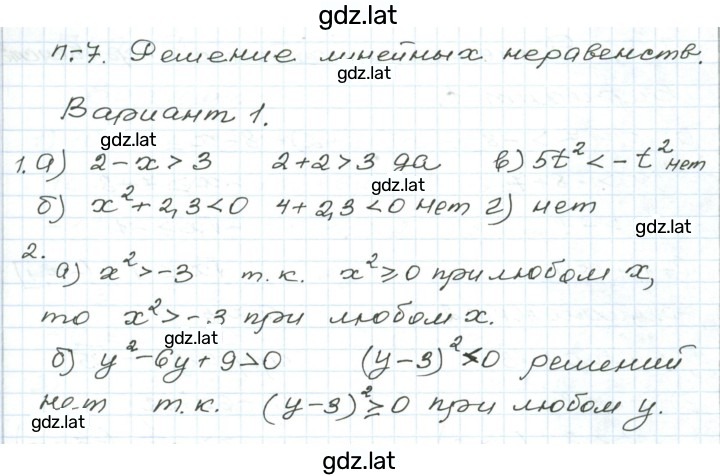 gdz.lat
П-7. Решение линейных неравенств.
gdz.lat
Вариант 1.
gdz.lat
1. а) 2-x>3 2+2>3 да в) 5t²<-t² нет
gdz.lat
б) x²+2,3<0 4+2,3<0 нет г) нет
gdz.lat
2.
а) x²>-3 т.к. x²≥0 при любом x,
то x²>-3 при любом x.
gdz.lat
б) y²-6y+9>0 (y-3)²<0 решений
нет т.к. (y-3)²≥0 при любом y.
gdz.lat
gdz.lat